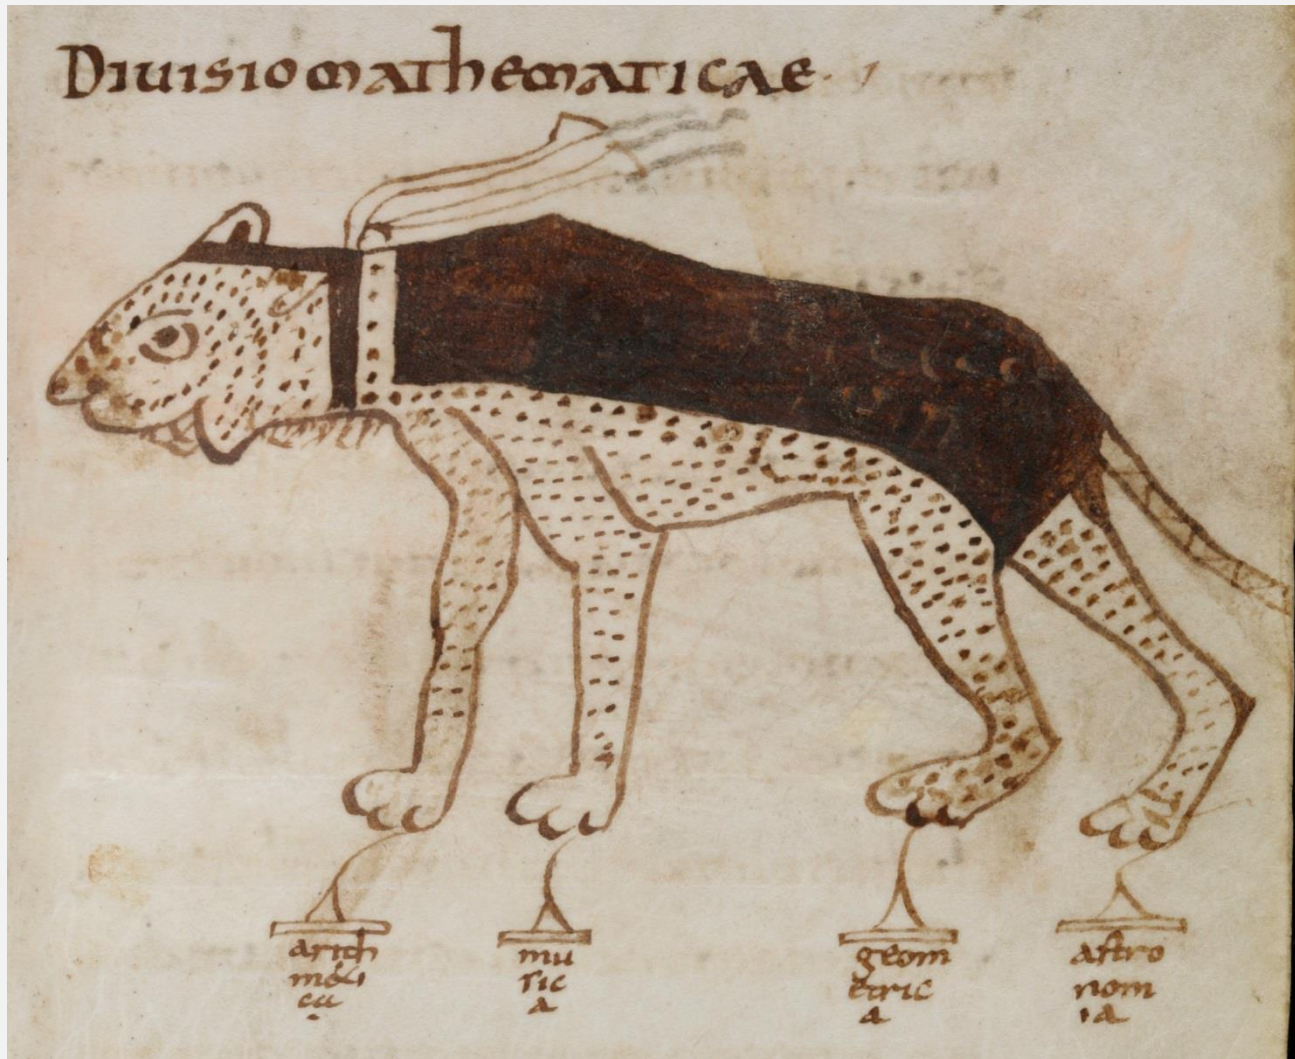 Diuisio mathematicae
arith
meti
ca
mu
sic
a
geom
etric
a
astro
nom
ia